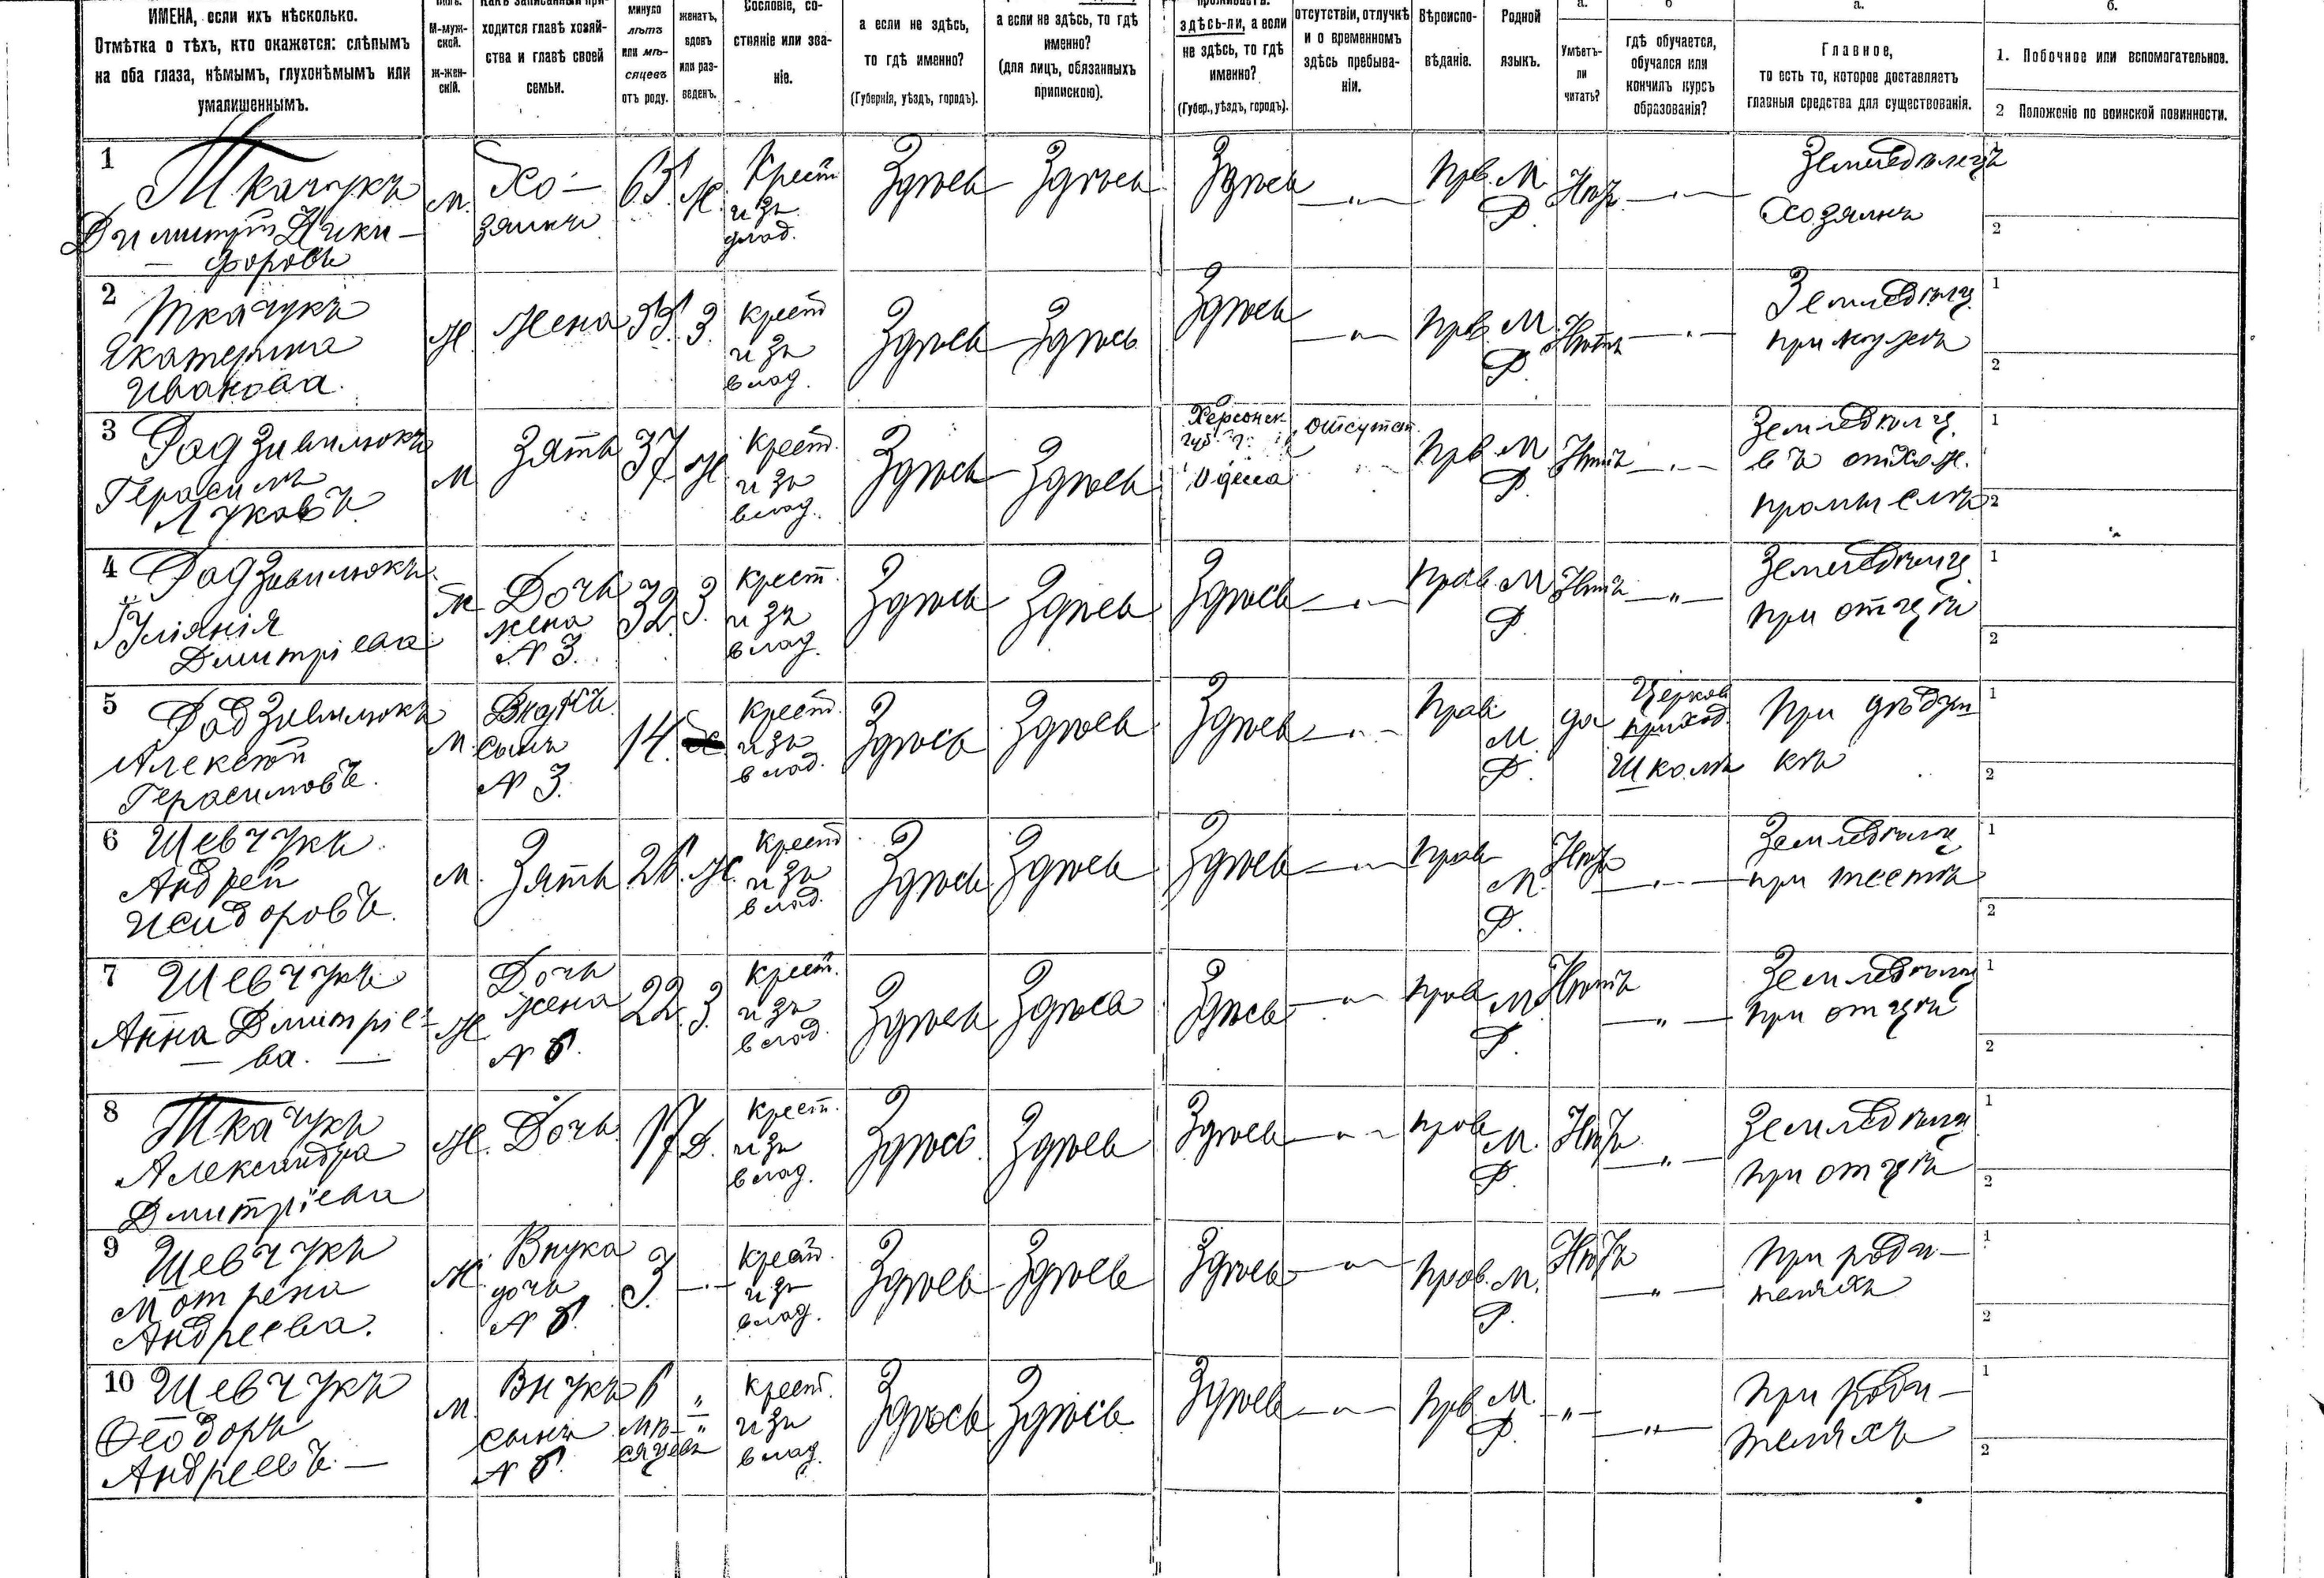 ИМЕНА, если ихъ нѣсколько.
Отмѣтка о тѣхъ, кто окажется: слѣпымъ
на оба глаза, нѣмымъ, глухонѣмымъ или
умалишеннымъ.
М-муж-
ской.
ж-жен-
скій.
ходится главѣ хозяй-
ства и главѣ своей
семьи.
минуло
лѣтъ
или мѣ-
сяцевъ
отъ роду.
женатъ,
вдовъ
или раз-
веденъ.
Сословіе, со-
стояніе или зва-
ніе.
а если не здѣсь,
то гдѣ именно?
(Губернія, уѣздъ, городъ).
а если не здѣсь, то гдѣ
именно?
(для лицъ, обязанныхъ
припискою).
здѣсь-ли, а если
не здѣсь, то гдѣ
именно?
(Губер., уѣздъ, городъ).
отсутствіи, отлучкѣ
и о временномъ
здѣсь пребыва-
ніи.
Вѣроиспо-
вѣданіе.
Родной
языкъ.
а.
Умѣетъ-
ли
читать?
б
гдѣ обучается,
обучался или
кончилъ курсъ
образованія?
а.
Главное,
то есть то, которое доставляетъ
главныя средства для существованія.
б.
1. Побочное или вспомогательное.
2 Положеніе по воинской повинности.
1
Ткачукъ
Димитр Ники-
форовъ
м.
Хо-
зяинъ
65
Ж.
Крест
изъ
влад.
Здѣсь
Здѣсь
Здѣсь
—„—
Прв.
М.
Р.
Нѣтъ
—„—
Земледѣлецъ
Хозяинъ
2
2
Ткачукъ
Екатерина
Иванова.
Ж.
Жена
55
З.
Крест
изъ
влад.
Здѣсь
Здѣсь
Здѣсь
—„—
Прв.
М.
Р.
Нѣтъ
—„—
Земледѣлец.
при мужѣ
1
2
3
Герасимъ
Луковъ
М
Зять
37
Ж
Крест.
изъ
влад.
Здѣсь
Здѣсь
Херсонск.
губ. г.
Одесса
отсутст.
Прв
М
Р.
Нѣтъ
—„—
Земледѣлец.
въ отхож.
промыслѣ
1
2
4
Дмитріева
Ж
Дочь
жена
N 3.
32
З.
Крест.
изъ
влад.
Здѣсь
Здѣсь
Здѣсь
—„—
Прав.
М
Р.
Нѣтъ
—„—
Земледѣлец.
при отцѣ
1
2
5
Алексѣй
Герасимовъ.
М.
Внукъ
сынъ
N 3.
14.
Крест.
изъ
влад.
Здѣсь
Здѣсь
Здѣсь
—„—
Прав
М.
Р.
да
Церков
приход.
Школѣ
При дѣдуш
кѣ
1
2
6
Шевчукъ
Андрей
Исидоровъ.
М.
Зять
26.
Ж.
Крест
изъ
влад.
Здѣсь
Здѣсь
Здѣсь
—„—
Прав
М.
Р.
Нѣтъ
—„—
Земледѣлец
при тестѣ
1
2
7
Шевчукъ
Анна Дмитріе-
— ва. —
Ж
Дочь
жена
N 6.
22.
З.
Крест.
изъ
влад.
Здѣсь
Здѣсь
Здѣсь
—„—
Прав
М
Р.
Нѣтъ
—„—
Земледѣлец
при отцѣ
1
2
8
Ткачукъ
Александра
Дмитріева
Ж.
Дочь
17
Д.
Крест.
изъ
влад.
Здѣсь
Здѣсь
Здѣсь
—„—
Прав
М.
Р.
Нѣтъ
—„—
Земледѣлец
при отцѣ
1
2
9
Шевчукъ
Мотрена
Андреева.
Ж.
Внука
дочь
N 6.
3.
—„—
Крест.
изъ
влад.
Здѣсь
Здѣсь
Здѣсь
—„—
Прав.
М.
Р.
Нѣтъ
—„—
при роди-
теляхъ
1
2
10
Шевчукъ
Ѳеодоръ
Андреевъ.—
М.
Внукъ
сынъ
N 6.
6
мѣ-
сяцевъ
„
Крест.
изъ
влад.
Здѣсь
Здѣсь
Здѣсь
—„—
Прв
М
Р.
—„—
—„—
При роди-
теляхъ
1
2